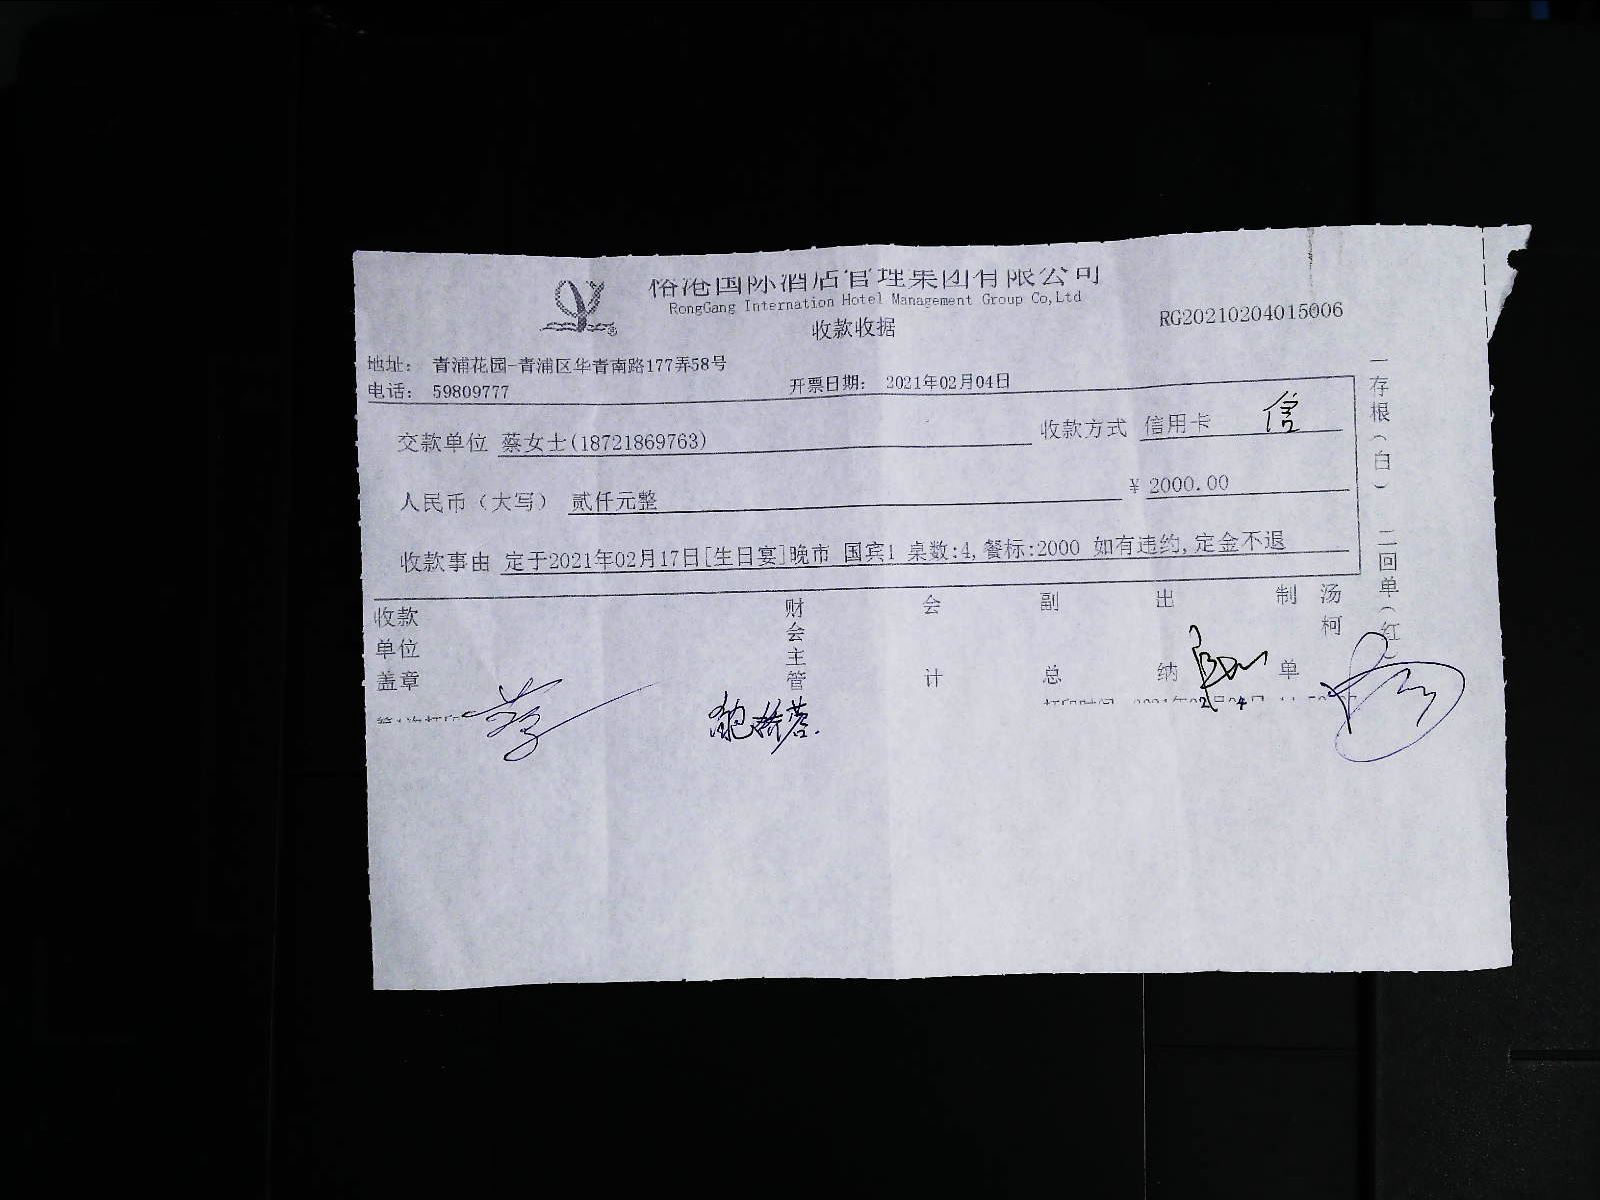 国际酒店管理集团有限公司
RongGang Internation Hotel Management Group Co,Ltd
收款收据
RG20210204015006
地址： 青浦花园-青浦区华青南路177弄58号
电话： 59809777
开票日期： 2021年02月04日
交款单位 蔡女士(18721869763)
收款方式 信用卡 信
人民币（大写） 贰仟元整
¥ 2000.00
收款事由 定于2021年02月17日[生日宴]晚市 国宾1 桌数:4,餐标:2000 如有违约,定金不退
收款单位盖章
财会主管
会计
副总
出纳
制单
汤柯
一存根（白） 二回单（红）